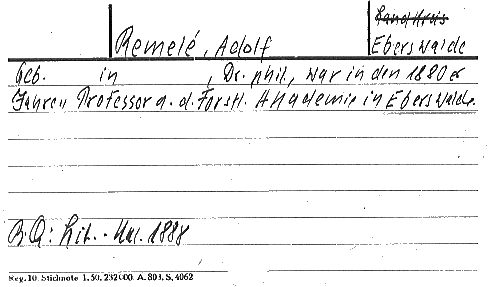 Landkreis
Remelé, Adolf Eberswalde
Geb. in , Dr. phil., war in den 1880er
Jahren Professor a. d. Forstl. Akademie in Eberswalde.
B. Q: Lit.-Kal. 1888
Reg. 10. Stichnote 1. 50. 232000. A. 803. S. 4062